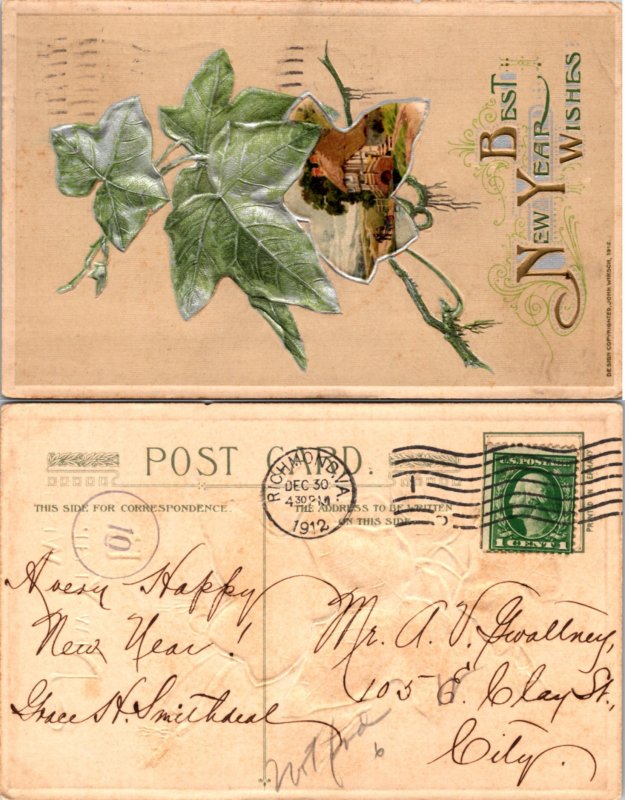 BEST
NEW YEAR
WISHES
DESIGN COPYRIGHTED, JOHN WINSCH, 1912.
POST CARD.
THIS SIDE FOR CORRESPONDENCE.
THE ADDRESS TO BE WRITTEN
ON THIS SIDE
RICHMOND, VA.
DEC 30
430 PM
1912
U.S. POSTAGE
1 CENT 1
PRINTED IN GERMANY
10
A very Happy
New Year!
Grace H. Smithdeal
Mr. A. V. Gwaltney,
105 E. Clay St.,
City.
not fnd
6